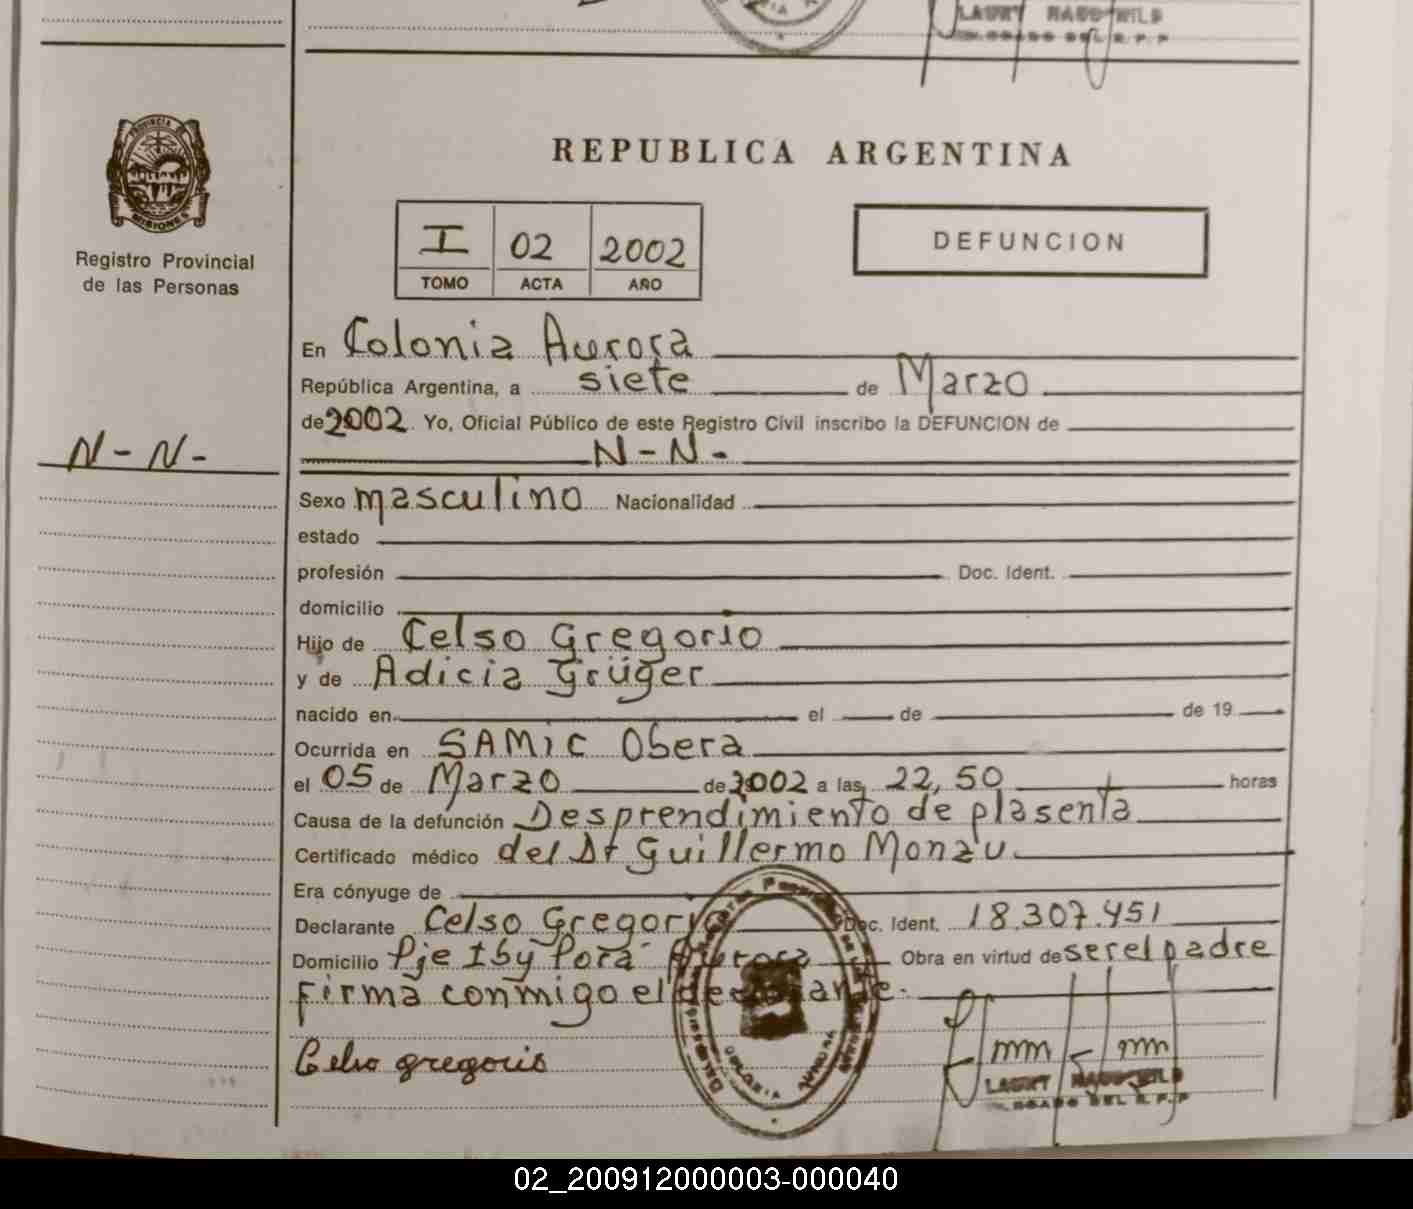 REPUBLICA ARGENTINA
PROVINCIA DE
MISIONES
Registro Provincial
de las Personas
I 02 2002
TOMO ACTA AÑO
DEFUNCION
En Colonia Aurora
República Argentina, a siete de Marzo
de 2002. Yo, Oficial Público de este Registro Civil inscribo la DEFUNCION de
N - N -
N - N -
Sexo masculino Nacionalidad
estado
profesión Doc. Ident.
domicilio
Hijo de Celso Gregorio
y de Adicia Grüger
nacido en el de de 19
Ocurrida en SAMic Obera
el 05 de Marzo de 2002 a las 22,50 horas
Causa de la defunción Desprendimiento de plasenta
Certificado médico del Dr Guillermo Monzu
Era cónyuge de
Declarante Celso Gregorio Doc. Ident. 18.307.451
Domicilio Pje Iby Porá Aurora Obra en virtud de ser el padre
firma conmigo el declarante.
Celso gregorio
DEL R.P.P
02_200912000003-000040